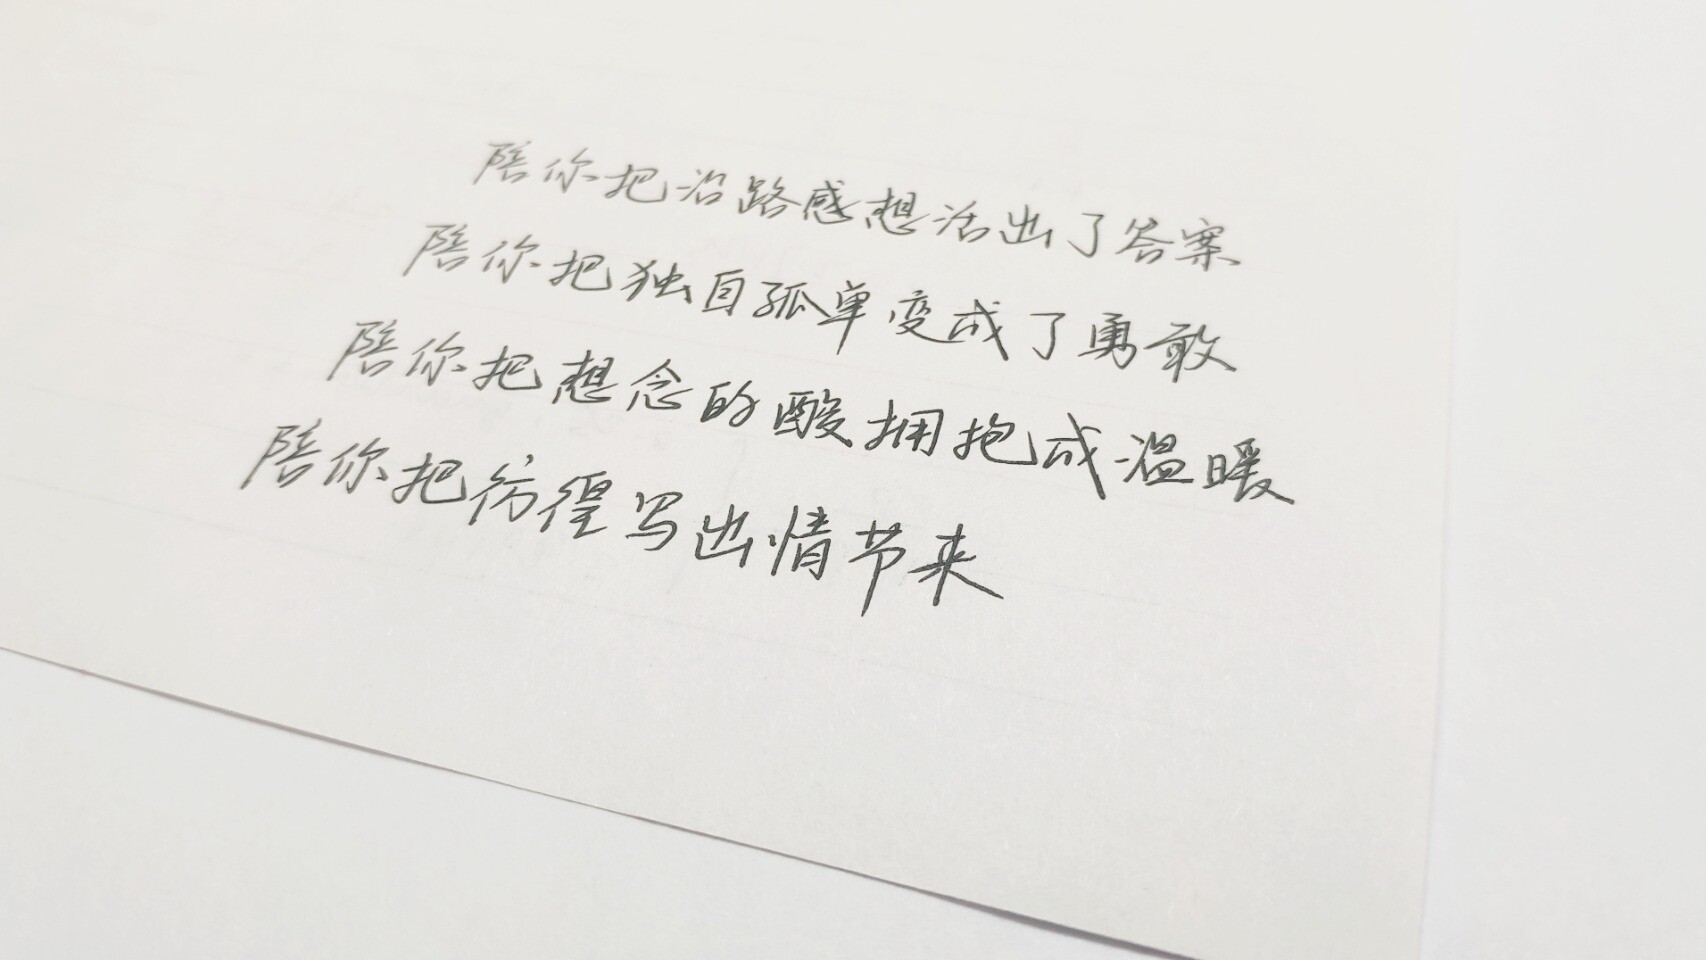 陪你把沿路感想活出了答案
陪你把独自孤单变成了勇敢
陪你把想念的酸拥抱成温暖
陪你把彷徨写出情节来